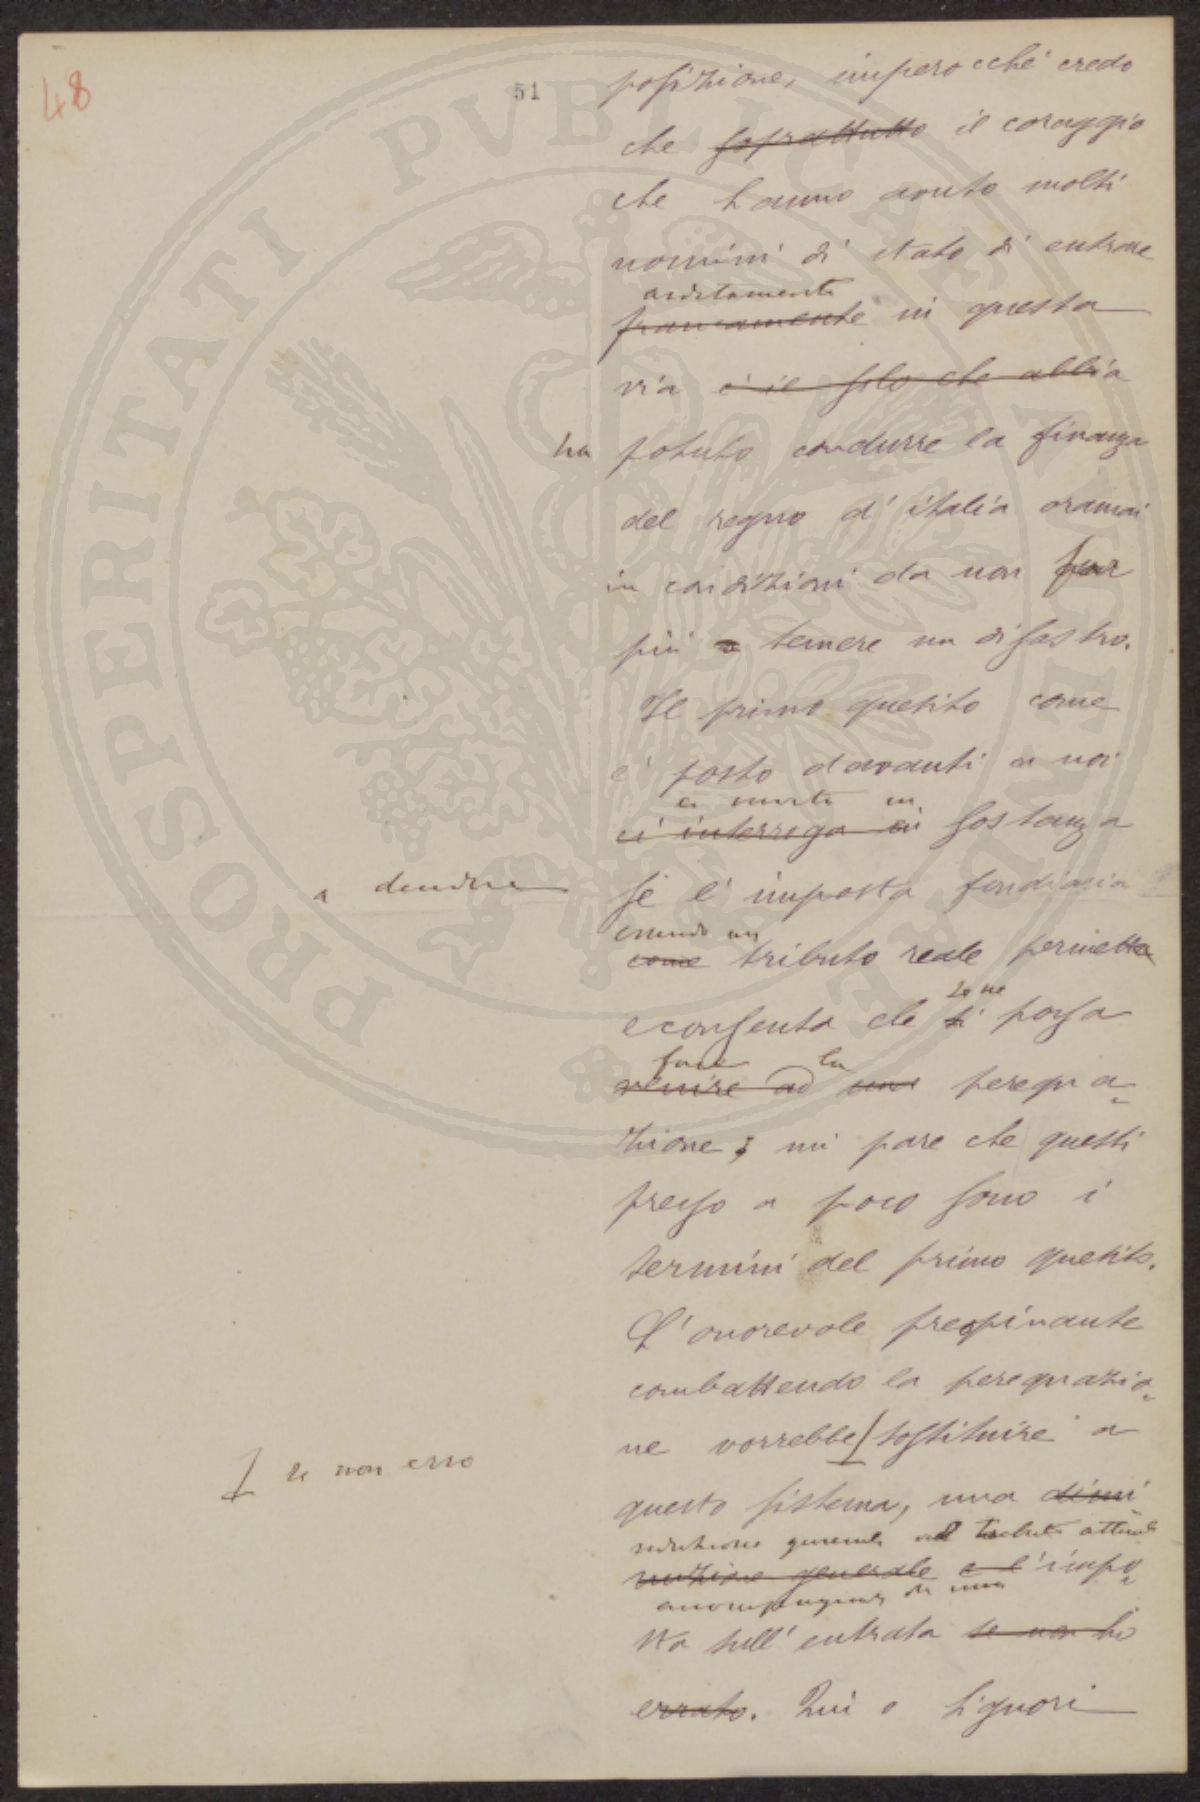 48
51
posizione, imperocché credo
che soprattutto il coraggio
che hanno avuto molti
uomini di stato di entrare
arditamente
francamente in questa
via è il solo che abbia
ha potuto condurre la finanza
del regno d'italia oramai
in condizioni da non far
più a temere un disastro.
Il primo quesito come
è posto davanti a noi
ci invita in
ci interroga in sostanza
a decidere
se l'imposta fondiaria
essendo un
come tributo reale permetta
e consenta che si possa
se ne
fare la
venire ad una perequa-
zione; mi pare che questi
presso a poco sono i
termini del primo quesito.
L'onorevole preopinante
combattendo la perequazio-
ne vorrebbe sostituire a
se non erro
questo sistema, una dimi-
riduzione generale del tributo attuale
nuzione generale e l'impo-
accompagnata da una
sta sull'entrata se non ho
errato. Qui o Signori
PROSPERITATI PVBLICAE AVGENDAE